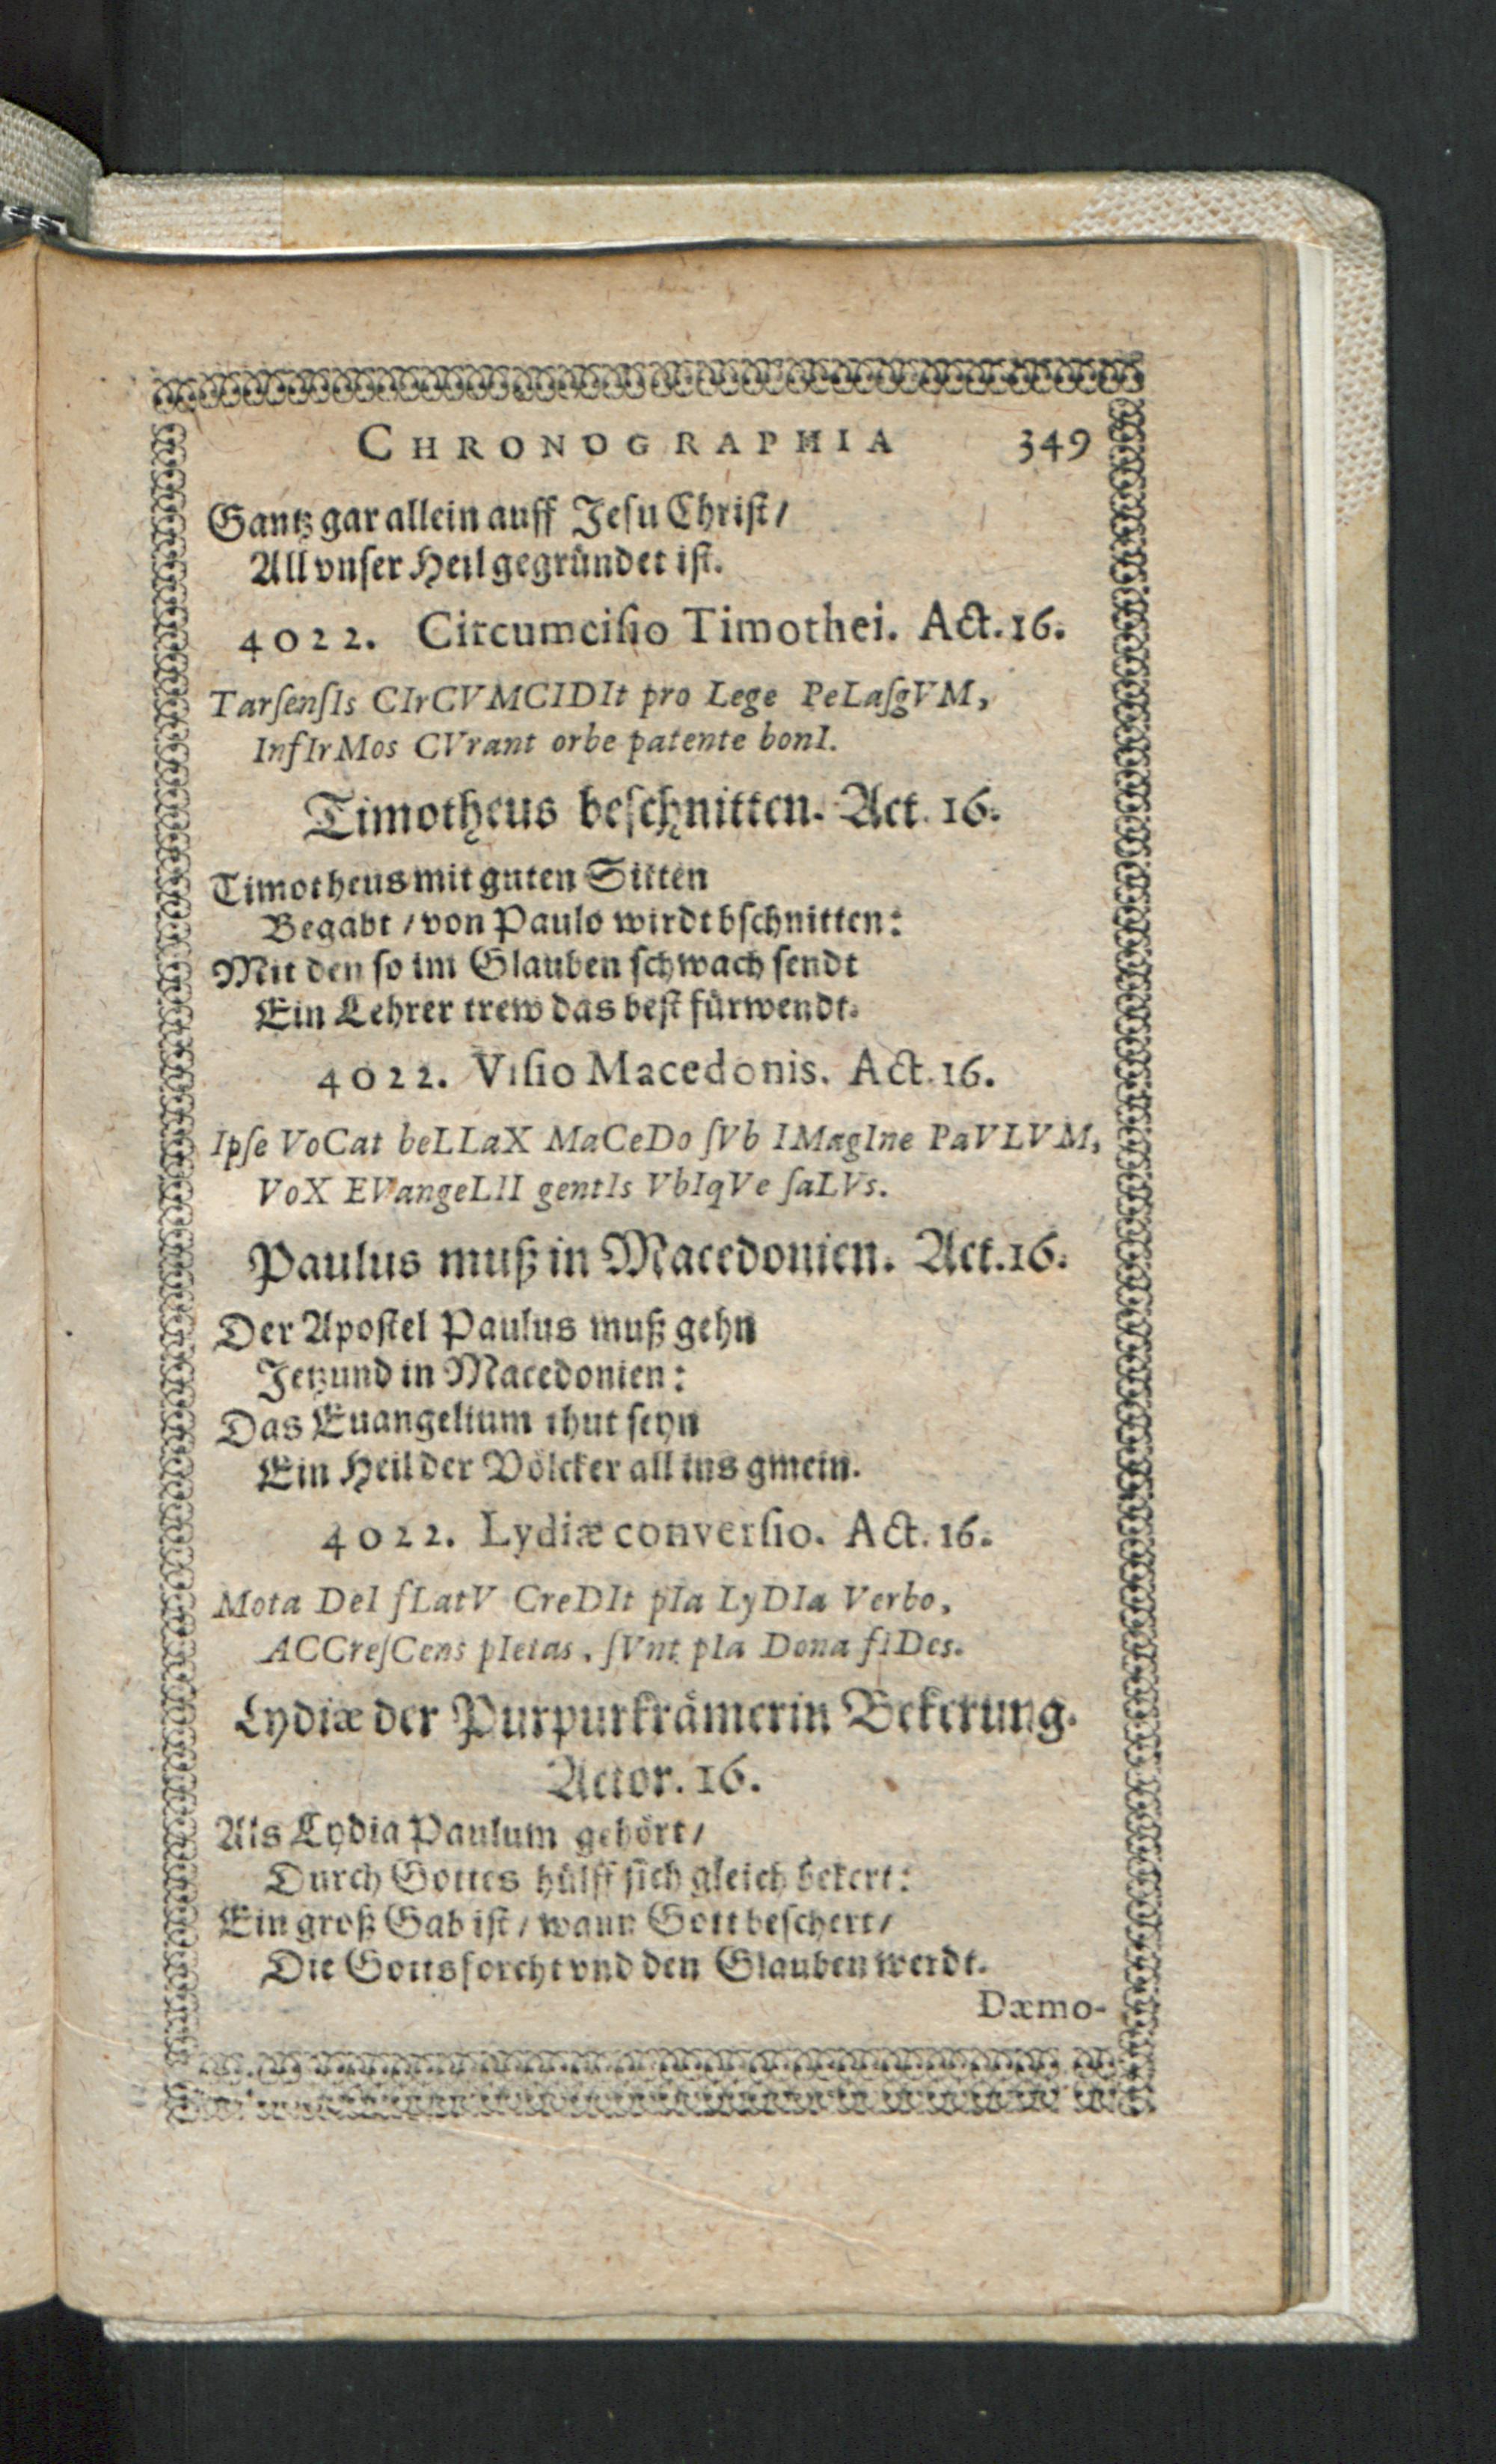 CHRONOGRAPHIA 349
Gantz gar allein auff Jesu Christ/
All vnser Heil gegründet ist.
4022. Circumcisio Timothei. Act. 16.
TarſenſIs CIrCVMCIDIt pro Lege PeLaſgVM,
InfIrMos CVrant orbe patente bonI.
Timotheus beschnitten. Act. 16.
Timotheus mit guten Sitten
Begabt / von Paulo wirdt bschnitten:
Mit den so im Glauben schwach sendt
Ein Lehrer trew das best fürwendt.
4022. Viſio Macedonis. Act. 16.
Ipſe VoCat beLLaX MaCeDo ſVb IMagIne PaVLVM,
VoX EVangeLII gentIs VbIqVe ſaLVs.
Paulus muß in Macedonien. Act. 16.
Der Apostel Paulus muß gehn
Jetzund in Macedonien:
Das Euangelium thut seyn
Ein Heil der Völcker all ins gmein.
4022. Lydiæ converſio. Act. 16.
Mota DeI fLatV CreDIt pIa LyDIa Verbo,
ACCreſCens pIetas, ſVnt pIa Dona fIDes.
Lydiæ der Purpurkrämerin Bekerung.
Actor. 16.
Als Lydia Paulum gehört/
Durch Gottes hülff sich gleich bekert:
Ein groß Gab ist / wann Gott beschert/
Die Gottsforcht vnd den Glauben werdt.
Dæmo-